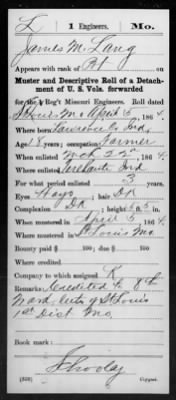 L 1 Engineers. Mo.
James M. Lang
Appears with rank of Pvt on
Muster and Descriptive Roll of a Detach-
ment of U. S. Vols. forwarded
for the 1 Reg't Missouri Engineers. Roll dated
St Louis Mo April 5, 1864.
Where born Lawrence Co Ind.
Age 18 y'rs; occupation Farmer
When enlisted Mch 22, 1864
Where enlisted Ind
For what period enlisted 3 years.
Eyes ; hair Dk
Complexion Dk; height 5 ft. 5 in.
When mustered in April 5, 1864.
Where mustered in St Louis Mo.
Bounty paid $ 100; due $ 100
Where credited
Company to which assigned K
Remarks: Credited to 8th
Ward, City of St Louis
1st Dist Mo
Book mark:
Copyist.